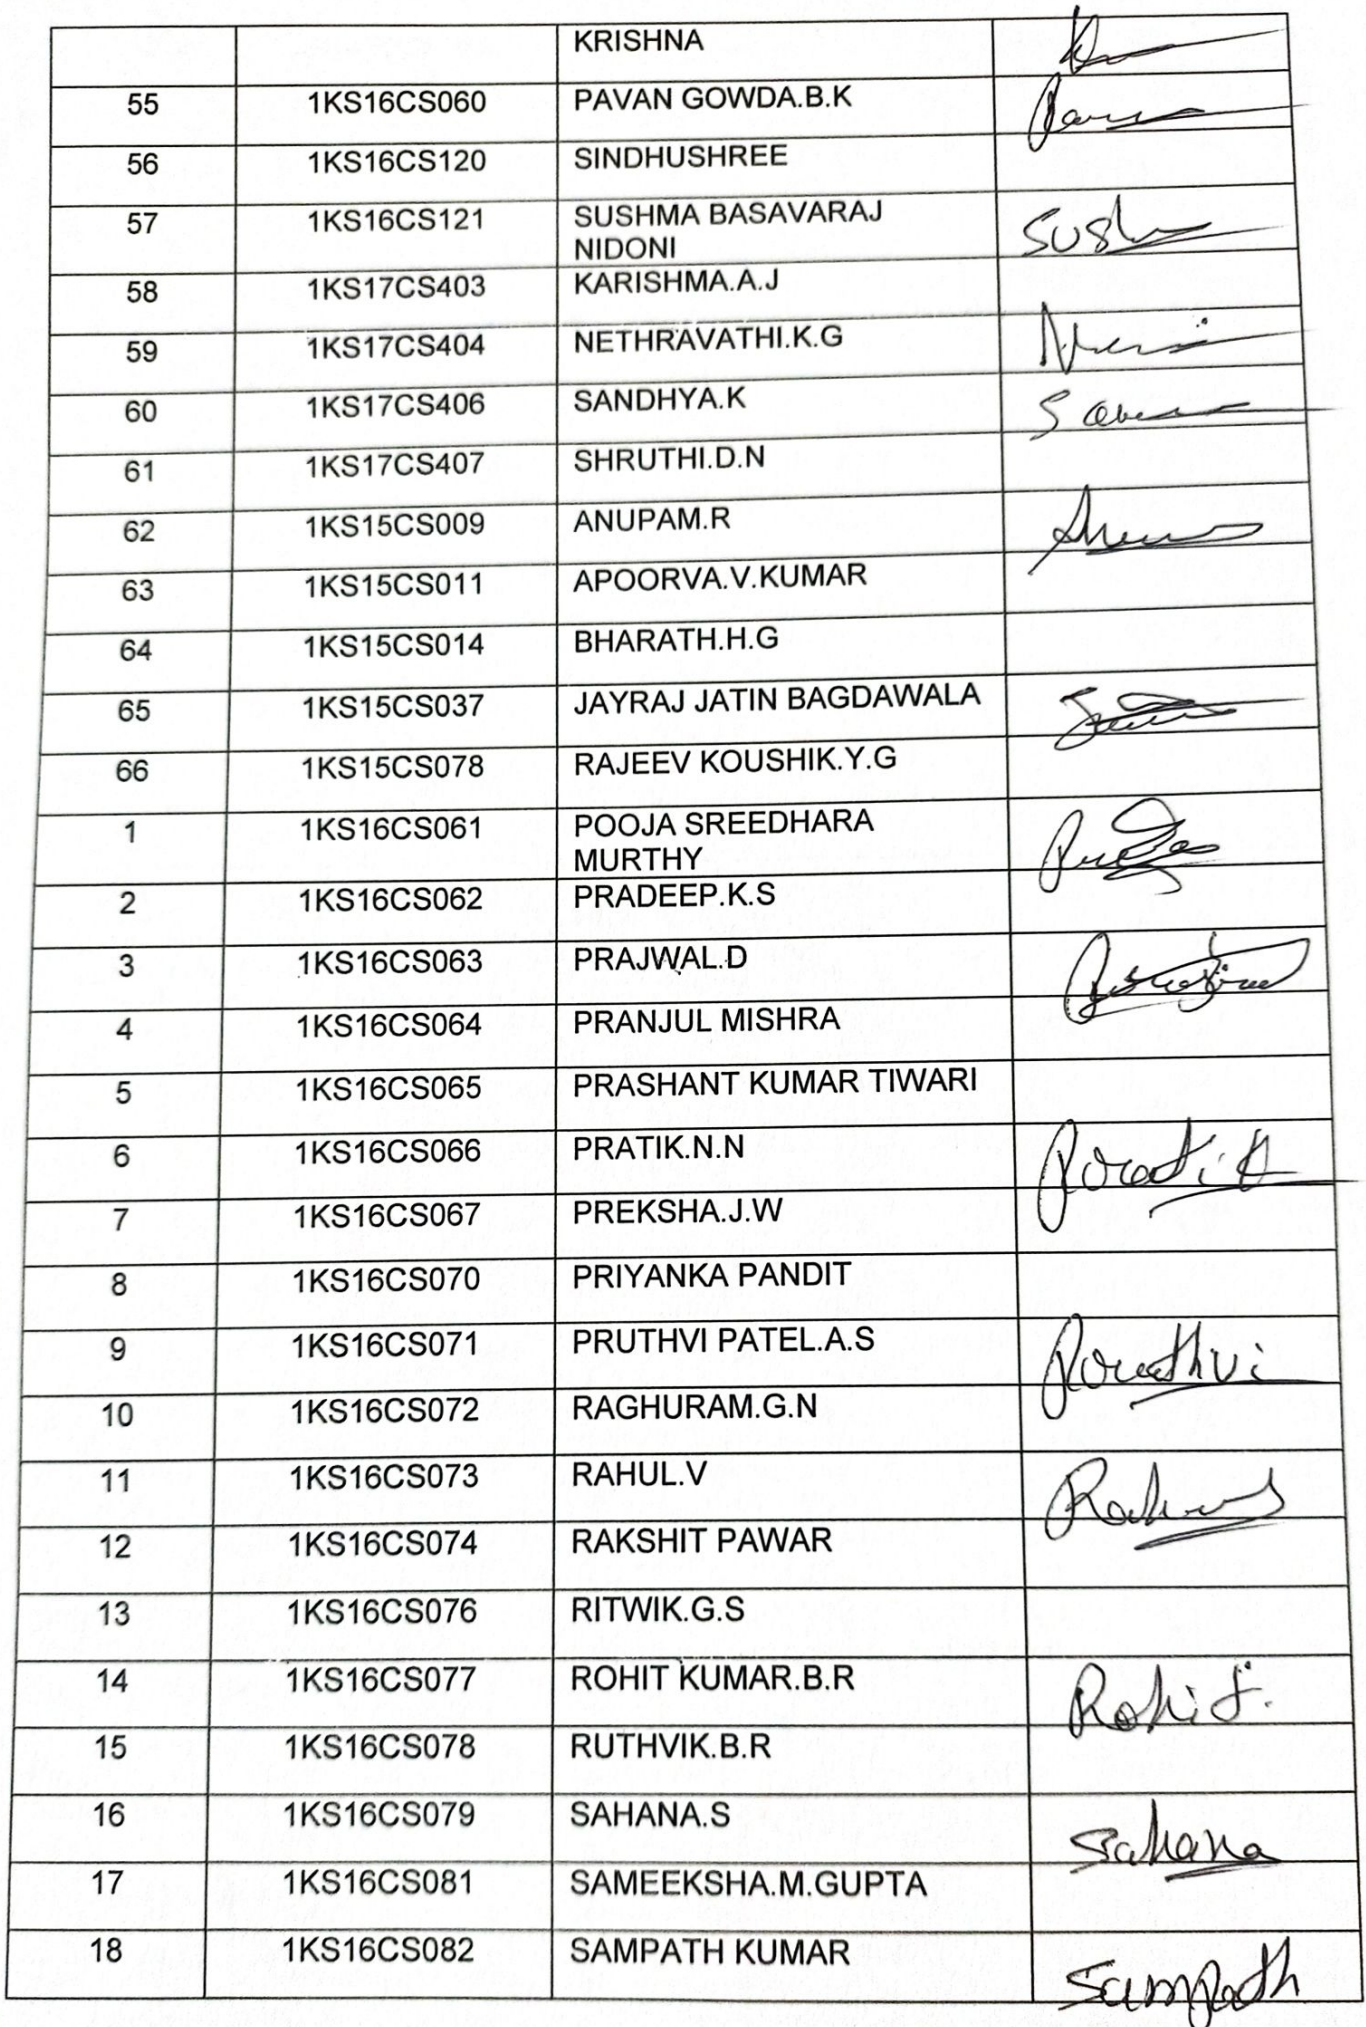 KRISHNA
55 1KS16CS060 PAVAN GOWDA.B.K
56 1KS16CS120 SINDHUSHREE
57 1KS16CS121 SUSHMA BASAVARAJ
NIDONI
58 1KS17CS403 KARISHMA.A.J
59 1KS17CS404 NETHRAVATHI.K.G
60 1KS17CS406 SANDHYA.K
61 1KS17CS407 SHRUTHI.D.N
62 1KS15CS009 ANUPAM.R
63 1KS15CS011 APOORVA.V.KUMAR
64 1KS15CS014 BHARATH.H.G
65 1KS15CS037 JAYRAJ JATIN BAGDAWALA
66 1KS15CS078 RAJEEV KOUSHIK.Y.G
1 1KS16CS061 POOJA SREEDHARA
MURTHY
2 1KS16CS062 PRADEEP.K.S
3 1KS16CS063 PRAJWAL.D
4 1KS16CS064 PRANJUL MISHRA
5 1KS16CS065 PRASHANT KUMAR TIWARI
6 1KS16CS066 PRATIK.N.N
7 1KS16CS067 PREKSHA.J.W
8 1KS16CS070 PRIYANKA PANDIT
9 1KS16CS071 PRUTHVI PATEL.A.S
10 1KS16CS072 RAGHURAM.G.N
11 1KS16CS073 RAHUL.V
12 1KS16CS074 RAKSHIT PAWAR
13 1KS16CS076 RITWIK.G.S
14 1KS16CS077 ROHIT KUMAR.B.R Rohit.
15 1KS16CS078 RUTHVIK.B.R
16 1KS16CS079 SAHANA.S Sahana
17 1KS16CS081 SAMEEKSHA.M.GUPTA
18 1KS16CS082 SAMPATH KUMAR Sampath